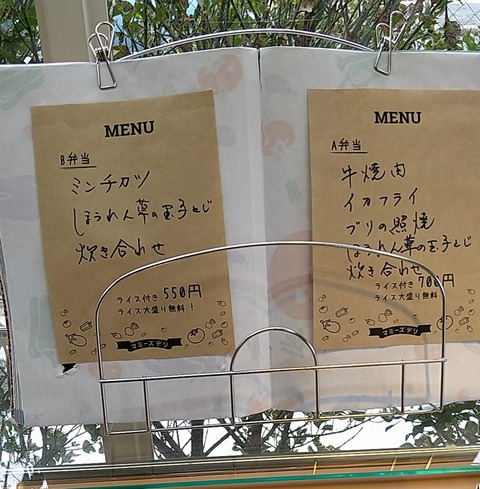 MENU
B弁当
ミンチカツ
ほうれん草の玉子とじ
炊き合わせ
ライス付き 550円
ライス大盛り無料!
マミーズデリ
MENU
A弁当
牛焼肉
イカフライ
ブリの照焼
ほうれん草の玉子とじ
炊き合わせ
ライス付き 700円
ライス大盛り無料!
マミーズデリ